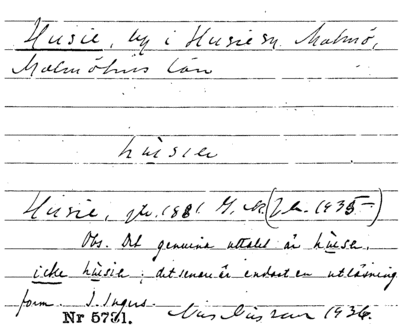 Husie, by i Husie sn. Malmö,
Malmöhus län
hùsier
Husie, gtr. 1881. (1935-)
Obs. Det genuina uttalet är hùse,
icke hùsie; det senare är endast en utläsning
form. I. Ingers.
Nr 5731. 1936.